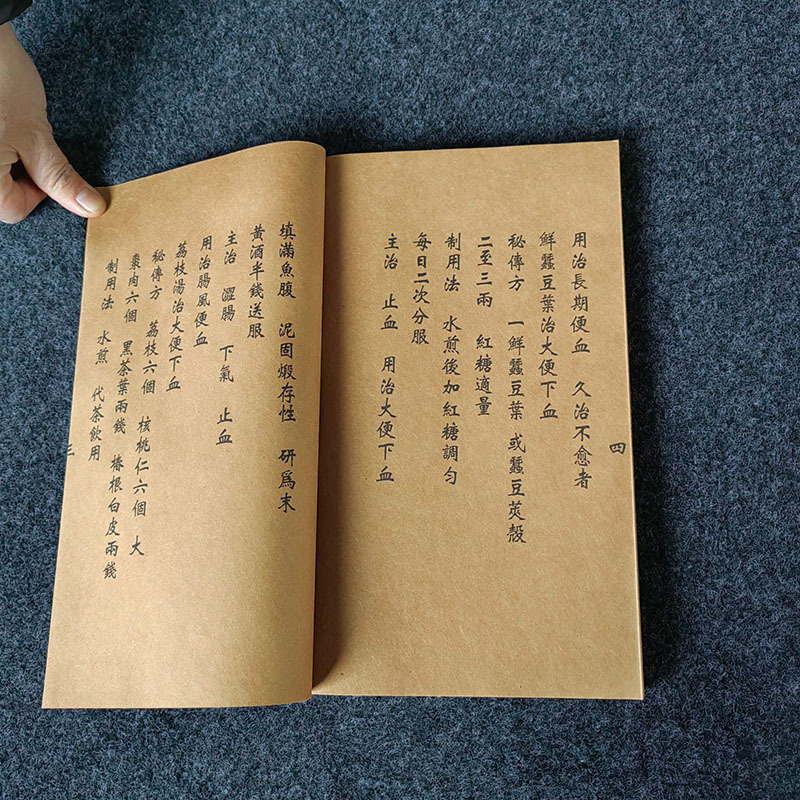 填滿魚腹 泥固煅存性 研爲末
黃酒半錢送服
主治 澀腸 下氣 止血
用治腸風便血
荔枝湯治大便下血
秘傳方 荔枝六個 核桃仁六個 大
棗肉六個 黑茶葉兩錢 椿根白皮兩錢
制用法 水煎 代茶飲用
三
四
用治長期便血 久治不愈者
鮮蠶豆葉治大便下血
秘傳方 一鮮蠶豆葉 或蠶豆莢殼
二至三兩 紅糖適量
制用法 水煎後加紅糖調勻
每日二次分服
主治 止血 用治大便下血